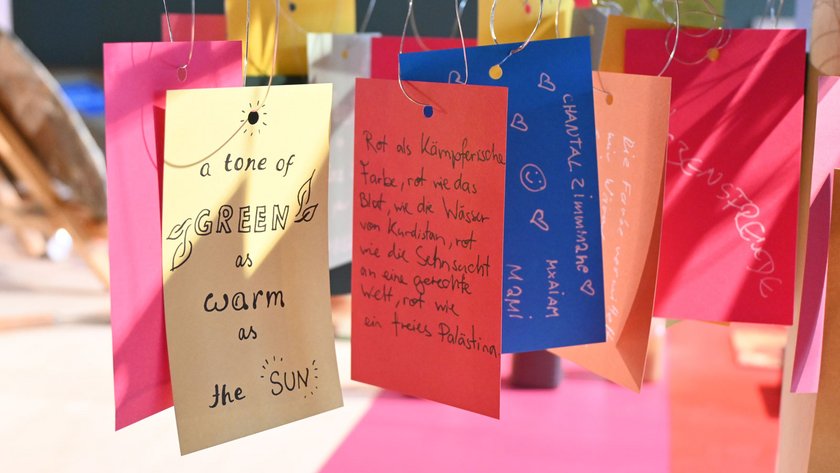 a tone of
GREEN
as
warm
as
the SUN
Rot als Kämpferische
Farbe, rot wie das
Blut, wie die Wässer
von Kurdistan, rot
wie die Sehnsucht
an eine gerechte
Welt, rot wie
ein freies Palästina.
CHANTAL Zimmmähe
MXAIAM
MAMI
Die Farbe